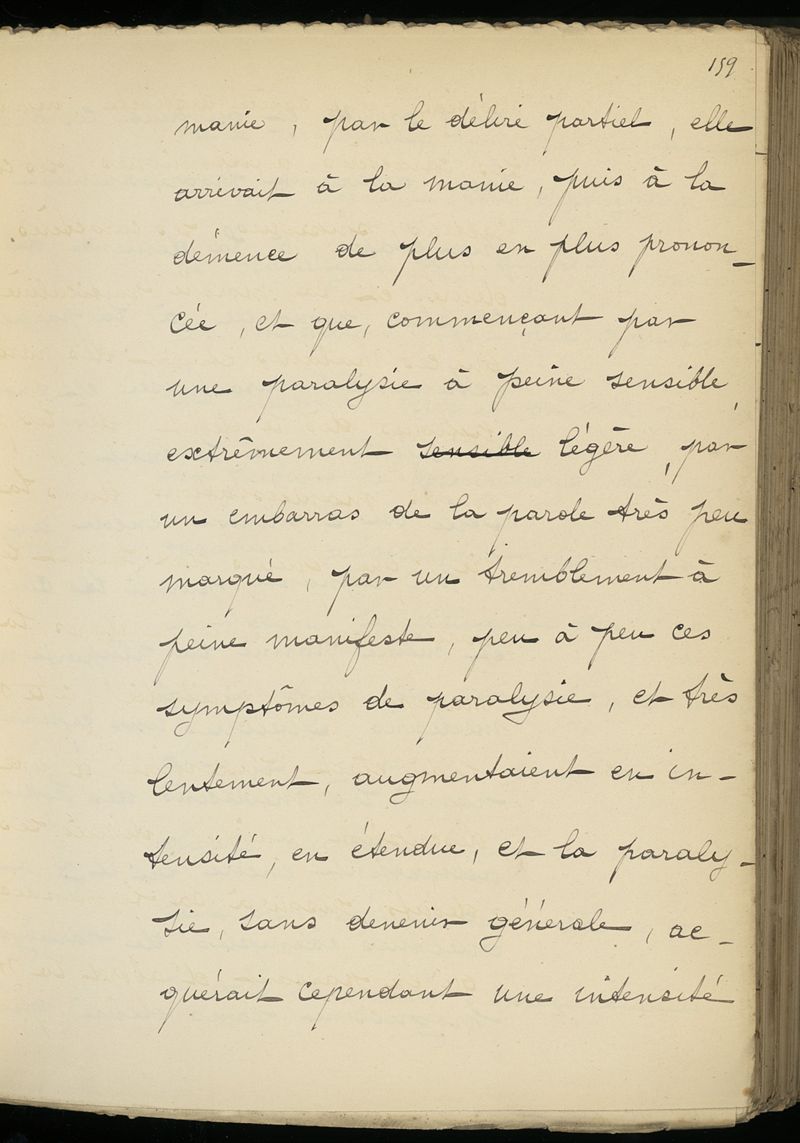 159
manie, par le délire partiel, elle
arrivait à la manie, puis à la
démence de plus en plus pronon-
cée, et que, commençant par
une paralysie à peine sensible,
extrêmement sensible légère, par
un embarras de la parole très peu
marqué, par un tremblement à
peine manifeste, peu à peu ces
symptômes de paralysie, et très
lentement, augmentaient en in-
tensité, en étendue, et la paraly-
sie, sans devenir générale, ac-
quérait cependant une intensité